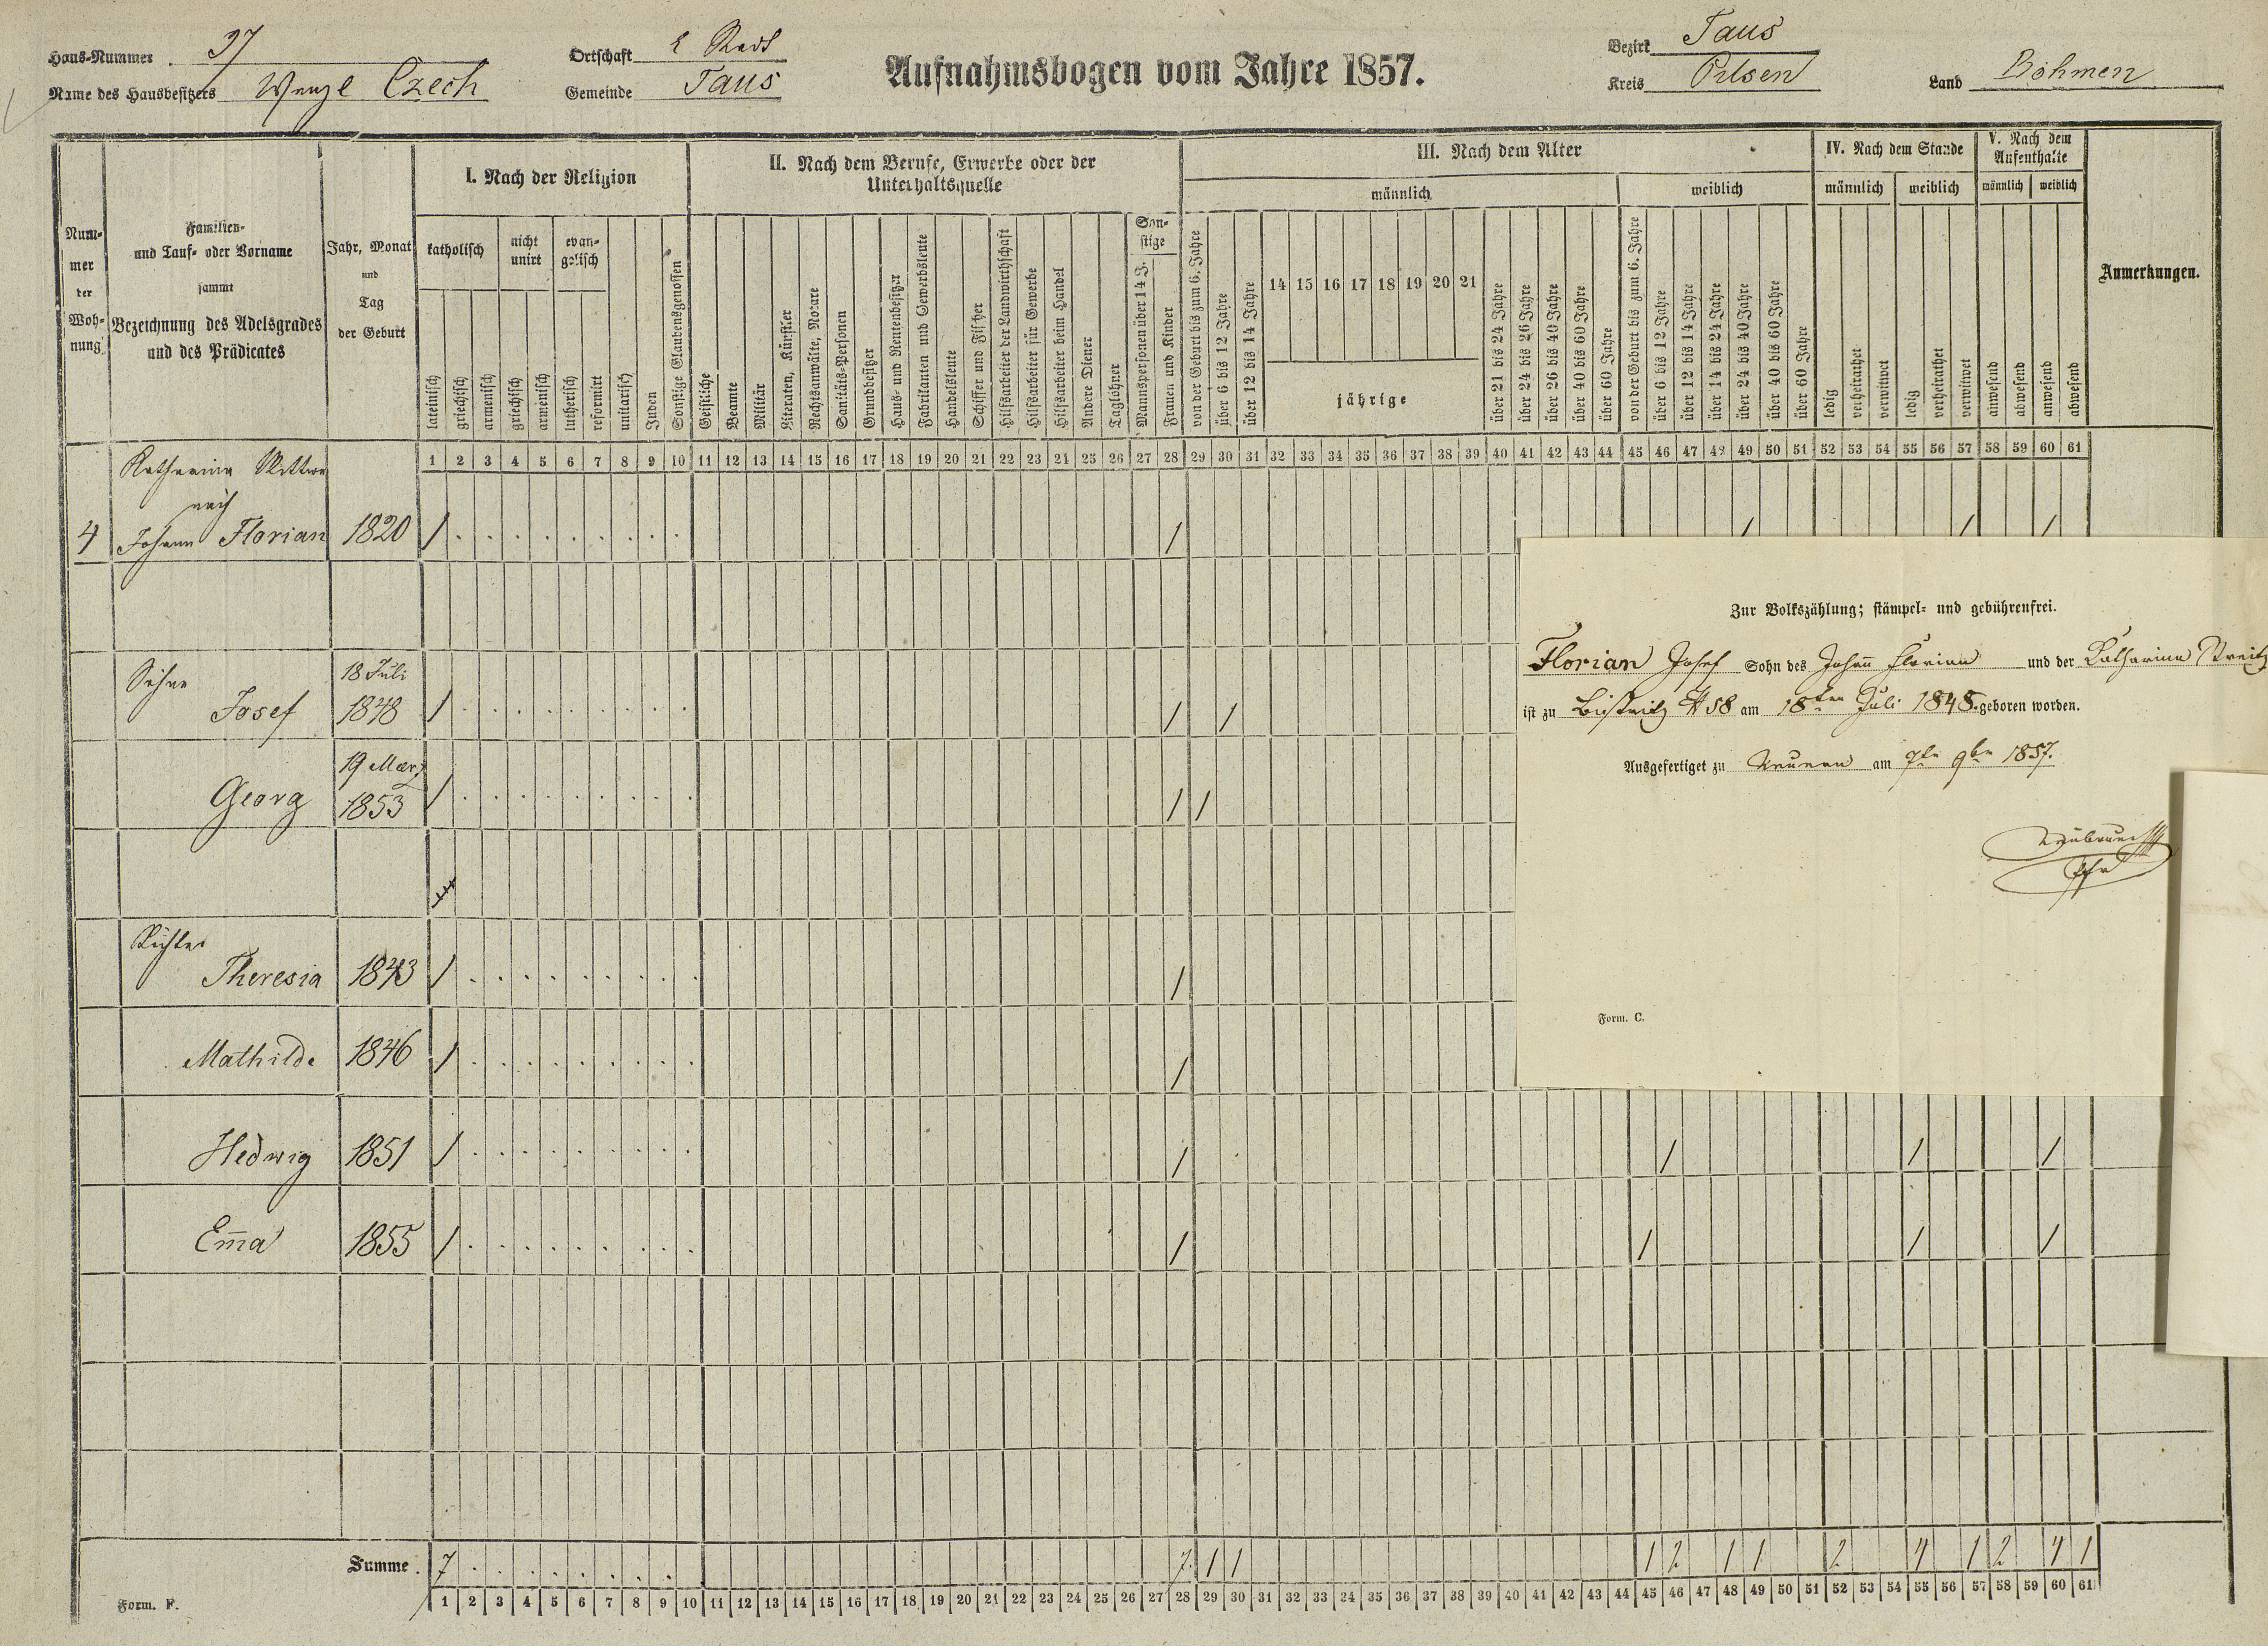 Haus-Nummer 37
Name des Hausbesitzers Wenzl Czech
Ortschaft Stadt
Gemeinde Taus
Aufnahmsbogen vom Jahre 1857.
Bezirk Taus
Kreis Pilsen
Land Böhmen
Nummer der Wohnung
Familien- und Tauf- oder Vorname sammt Bezeichnung des Adelsgrades und des Prädicates
Jahr, Monat und Tag der Geburt
I. Nach der Religion
katholisch
nicht unirt
evangelisch
lateinisch
griechisch
armenisch
griechisch
armenisch
lutherisch
reformirt
unitarisch
Juden
Sonstige Glaubensgenossen
II. Nach dem Berufe, Erwerbe oder der Unterhaltsquelle
Geistliche
Beamte
Militär
Literaten, Künstler
Rechtsanwälte, Notare
Sanitäts-Personen
Grundbesitzer
Haus- und Rentenbesitzer
Fabrikanten und Gewerbsleute
Handelsleute
Schiffer und Fischer
Hilfsarbeiter der Landwirthschaft
Hilfsarbeiter für Gewerbe
Hilfsarbeiter beim Handel
Andere Diener
Taglöhner
Sonstige
Mannspersonen über 14 J.
Frauen und Kinder
III. Nach dem Alter
männlich
von der Geburt bis zum 6. Jahre
über 6 bis 12 Jahre
über 12 bis 14 Jahre
14 15 16 17 18 19 20 21
jährige
über 21 bis 24 Jahre
über 24 bis 26 Jahre
über 26 bis 40 Jahre
über 40 bis 60 Jahre
über 60 Jahre
weiblich
von der Geburt bis zum 6. Jahre
über 6 bis 12 Jahre
über 12 bis 14 Jahre
über 14 bis 24 Jahre
über 24 bis 40 Jahre
über 40 bis 60 Jahre
über 60 Jahre
IV. Nach dem Stande
männlich
weiblich
ledig
verheirathet
verwitwet
ledig
verheirathet
verwitwet
V. Nach dem Aufenthalte
männlich
weiblich
anwesend
abwesend
anwesend
abwesend
Anmerkungen.
1 2 3 4 5 6 7 8 9 10 11 12 13 14 15 16 17 18 19 20 21 22 23 24 25 26 27 28 29 30 31 32 33 34 35 36 37 38 39 40 41 42 43 44 45 46 47 48 49 50 51 52 53 54 55 56 57 58 59 60 61
Katharina Wittwe
nach
4 Johann Florian 1820 / / / / /
Söhne
Josef 18 Juli 1848 / / /
Georg 19 Mærz 1853 / / /
Töchter
Theresia 1843 / /
Mathilde 1846 / /
Hedwig 1851 / / / / /
Em̄a 1855 / / / / /
Zur Volkszählung; stämpel- und gebührenfrei.
Florian Josef Sohn des Johañ Florian und der Katharina
ist zu Bistritz # 58 am 18ten Juli 1848 geboren worden.
Ausgefertiget zu Neuern am 9br 1857.
Pfr
Form. C.
Summe 7 7 1 1 1 2 1 1 2 4 1 2 4 1
1 2 3 4 5 6 7 8 9 10 11 12 13 14 15 16 17 18 19 20 21 22 23 24 25 26 27 28 29 30 31 32 33 34 35 36 37 38 39 40 41 42 43 44 45 46 47 48 49 50 51 52 53 54 55 56 57 58 59 60 61
Form. F.